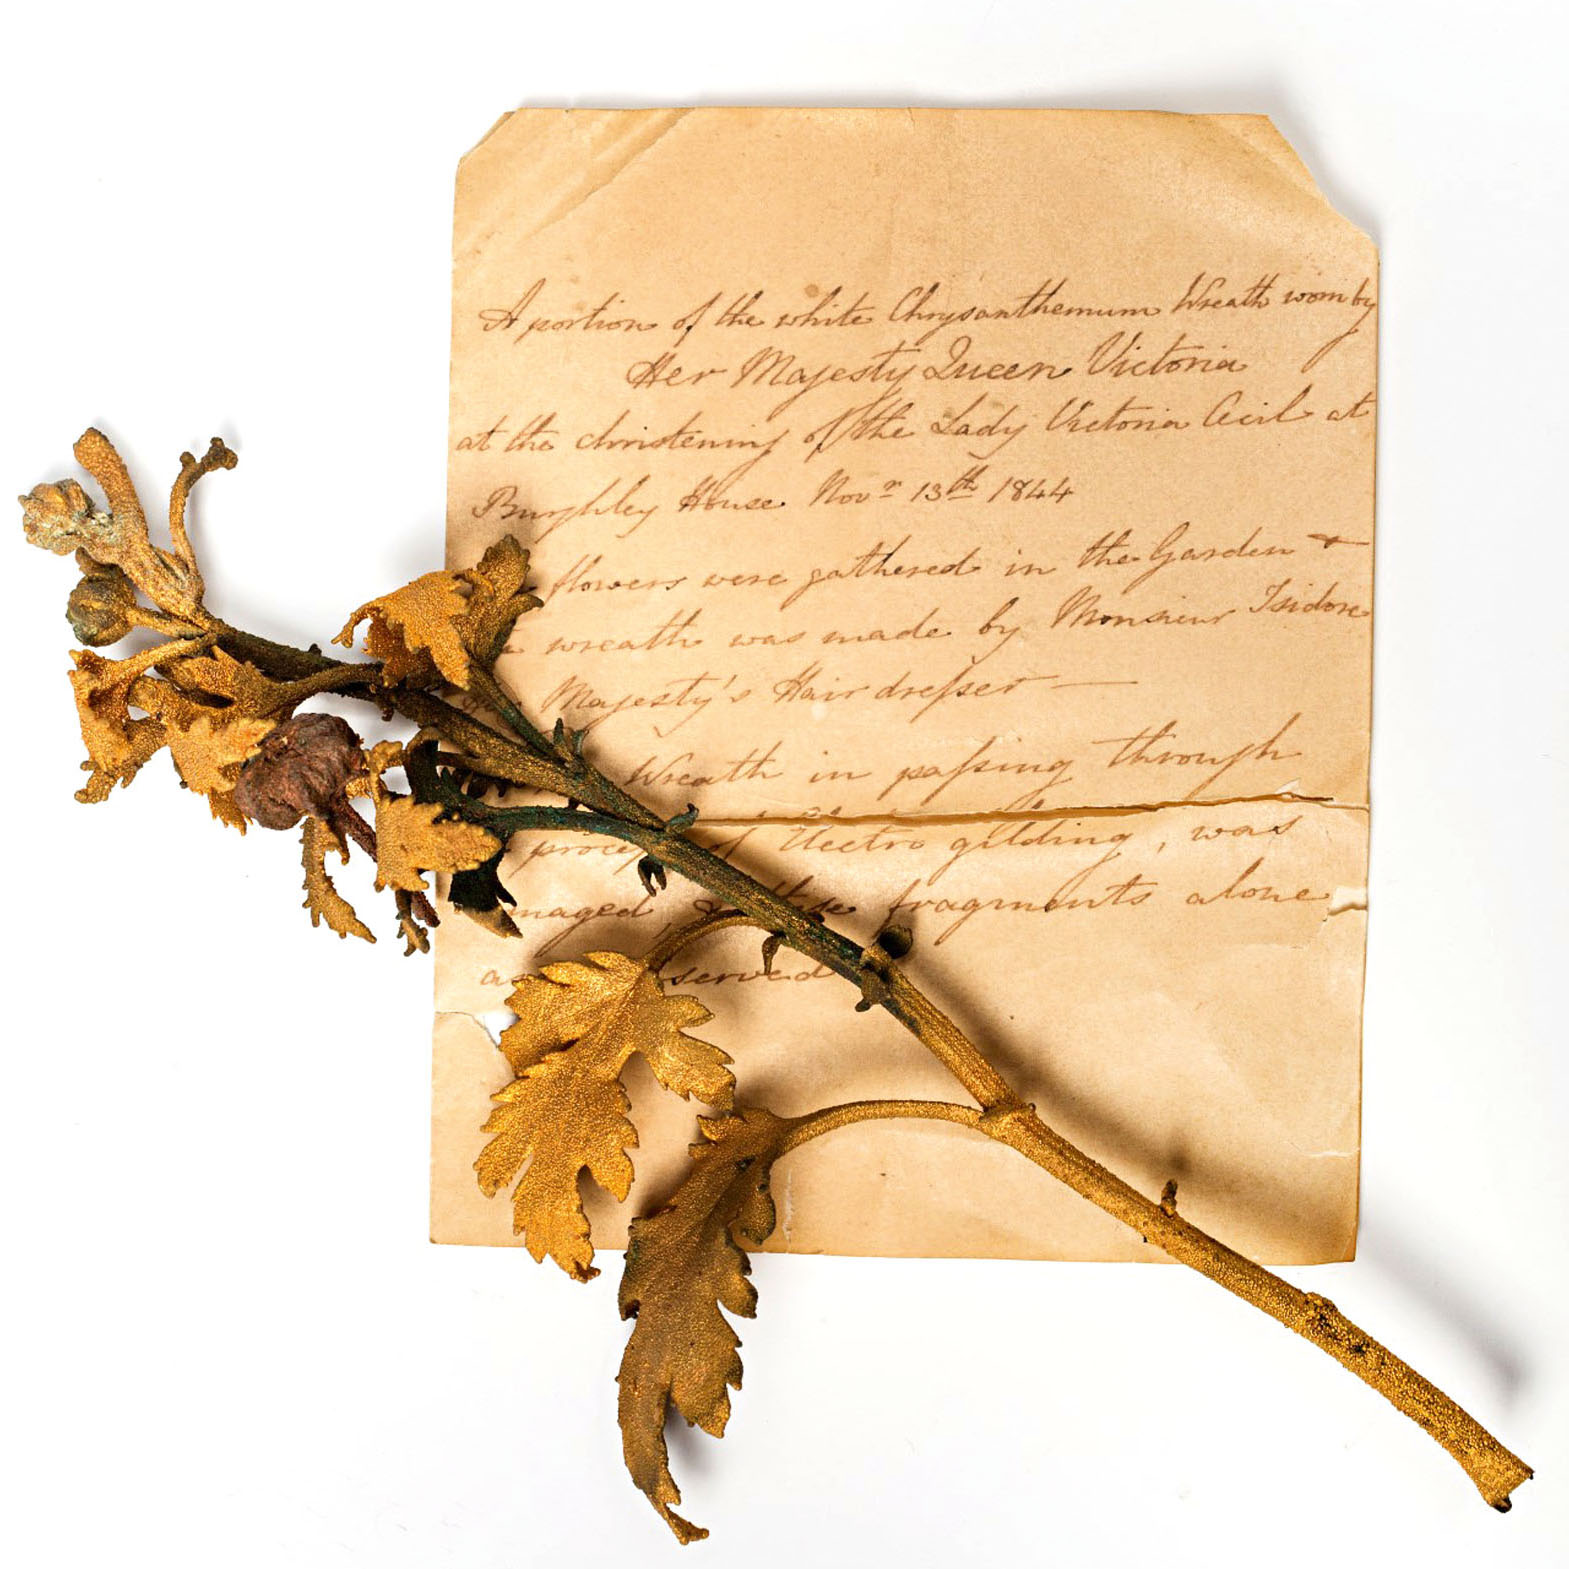 A portion of the white Chrysanthemum Wreath worn by
Her Majesty Queen Victoria
at the christening of the Lady Victoria Cecil at
Burghley House Novr 13th 1844
flowers were gathered in the Garden &
wreath was made by Monsieur Isidore
Majesty's Hairdreſser —
Wreath in paſsing through
proceſs of Electro gilding, was
maged, & these fragments alone
served